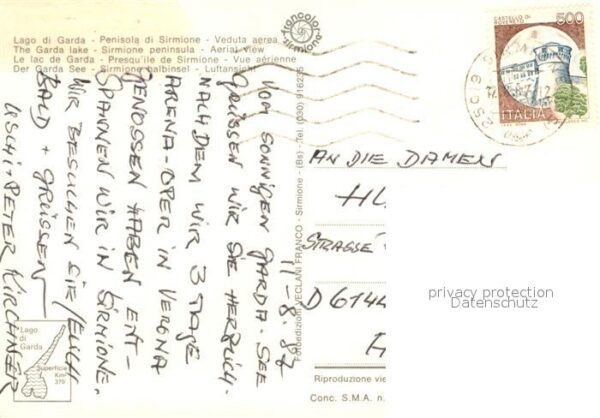 Lago di Garda - Penisola di Sirmione - Veduta aerea
The Garda lake - Sirmione peninsula - Aerial view
Le lac de Garda - Presqu'ile de Sirmione - Vue aérienne
Der Garda See - Sirmione halbinsel - Luftansicht
francolor
sirmione
500
ITALIA
11-8.87
VOM SONNIGEN GARDA-SEE
GRÜSSEN WIR SIE HERZLICH.
NACHDEM WIR 3 TAGE
ARENA-OPER IN VERONA
GENOSSEN HABEN ENT-
SPANNEN WIR IN SIRMIONE.
WIR BESUCHEN SIE/EUCH
BALD + GRÜSSEN
USCHI+PETER KIRCHNER
Fotoedizioni VECLANI FRANCO - Sirmione - (Bs) - Tel. (030) 916235
AN DIE DAMEN
STRASSE
D 6144
privacy protection
Datenschutz
Lago
di
Garda
Superficie
Km²
370
Riproduzione vie
Conc. S.M.A. n.